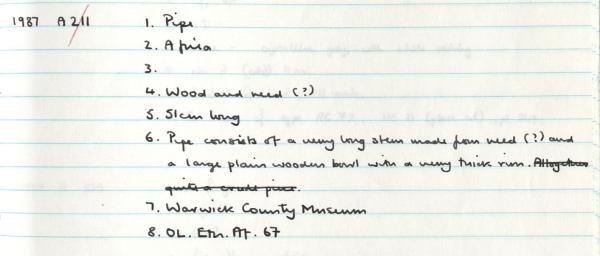 1987 A 2/11 1. Pipe
2. Africa
3.
4. Wood and reed (?)
5. Stem long
6. Pipe consists of a very long stem made from reed (?) and
a large plain wooden bowl with a very thick rim. Altogether
quite a crude piece.
7. Warwick County Museum
8. OL. Etn. Af. 67